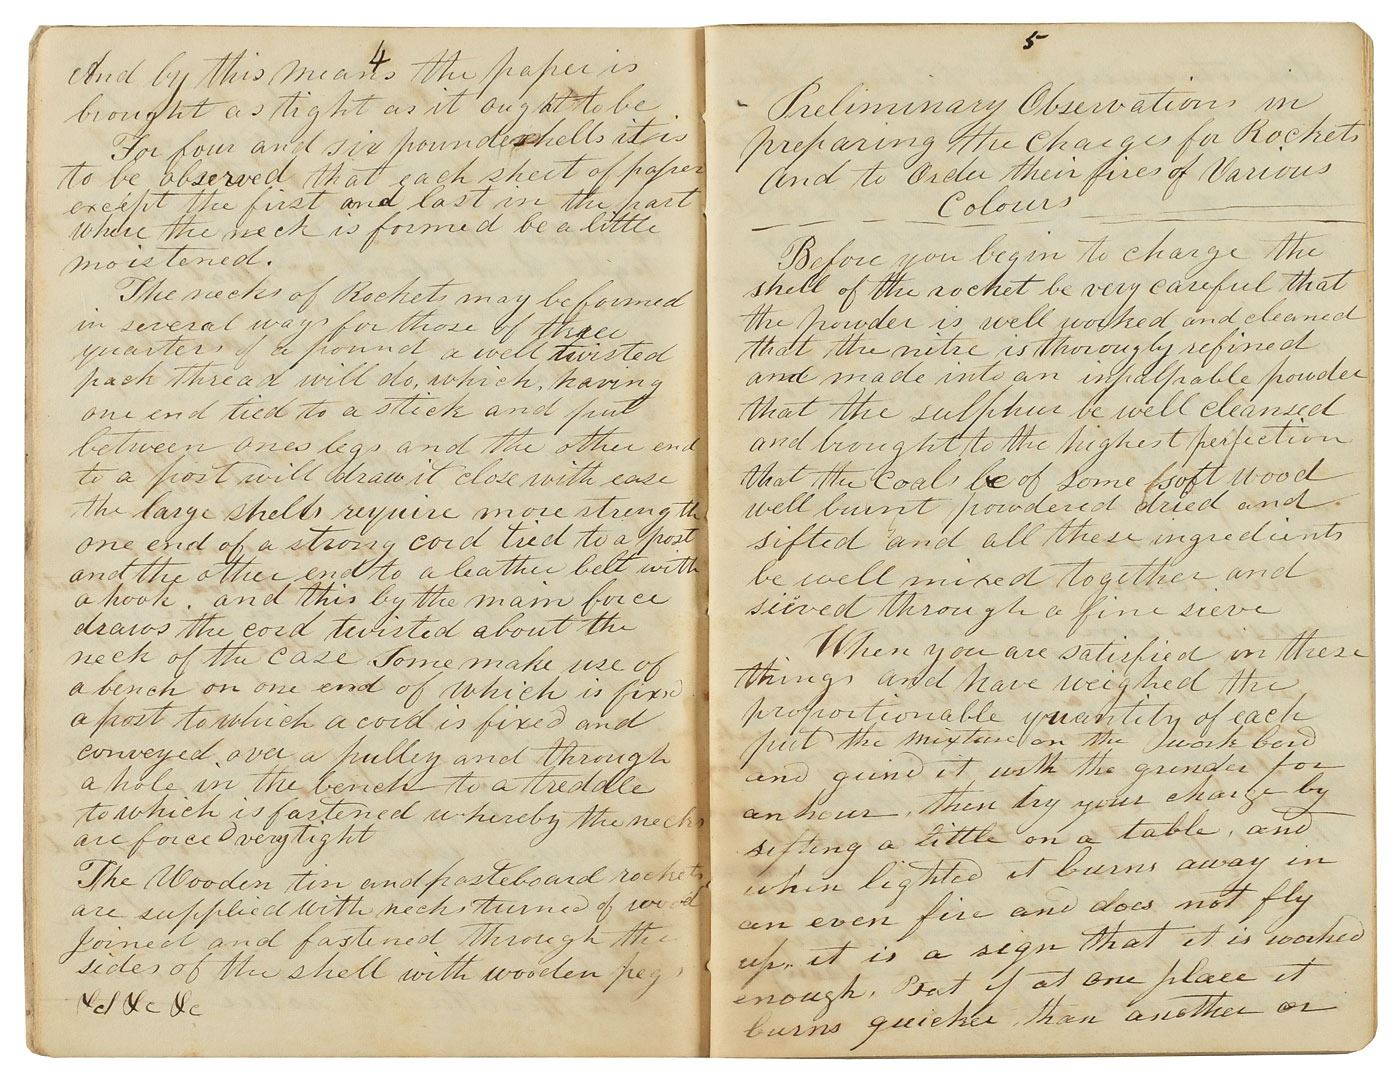 4
And by this means the paper is
brought as tight as it ought to be
For four and six pounder shells it is
to be observed that each sheet of paper
except the first and last in the part
where the neck is formed be a little
moistened.
The necks of Rockets may be formed
in several ways for those of three
quarters of a pound a well twisted
pack thread will do, which, having
one end tied to a stick and put
between ones legs and the other end
to a post will draw it close with ease
the large shells require more strength
one end of a strong cord tied to a post
and the other end to a leather belt with
a hook. and this by the main force
draws the cord twisted about the
neck of the case Some make use of
a bench on one end of which is fixed
a post to which a cord is fixed and
conveyed over a pulley and through
a hole in the bench to a treddle
to which is fastened whereby the necks
are forced very tight
The Wooden tin and pasteboard rockets
are supplied with necks turned of wood
Joined and fastened through the
sides of the shell with wooden pegs
&c &c &c
5
Preliminary Observations in
preparing the Charges for Rockets
and to Order their fires of Various
Colours
Before you begin to charge the
shell of the rocket be very careful that
the powder is well worked and cleaned
that the nitre is thorougly refined
and made into an inpalpable powder
that the sulphur be well cleansed
and brought to the highest perfection
that the Coals be of some soft wood
well burnt powdered dried and
sifted and all these ingredients
be well mixed together and
sieved through a fine sieve
When you are satisfied in these
things and have weighed the
proportionable quantity of each
put the mixture on the work bord
and grind it with the grinder for
an hour, then try your charge by
sifting a little on a table, and
when lighted it burns away in
an even fire and does not fly
up. it is a sign that it is worked
enough, But if at one place it
burns quicker than another or